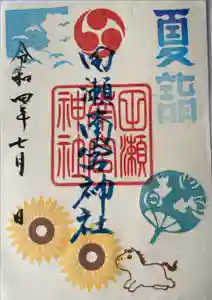 夏詣
田瀬南宮神社
令和四年七月 日
田瀬
神社